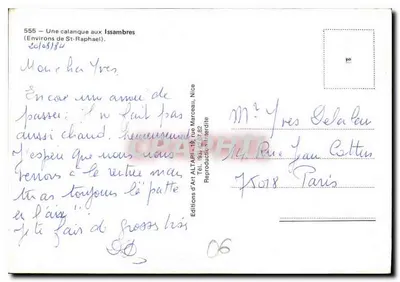 555 - Une calanque aux Issambres
(Environs de St-Raphaël).
20/08/84
Mon cher Yves,
Encore un année de
passée. Il n fait pas
aussi chaud, heureusement
J'espère que nous nous
verrons à la rentrée mais
tu as toujours la patte
en l'air !!
Je te fais de grosses bises
Editions d'Art ALTARI - 19, rue Marceau, Nice
Reproduction interdite
Mr Yves
Rue Jean Cottin
75018 Paris
06